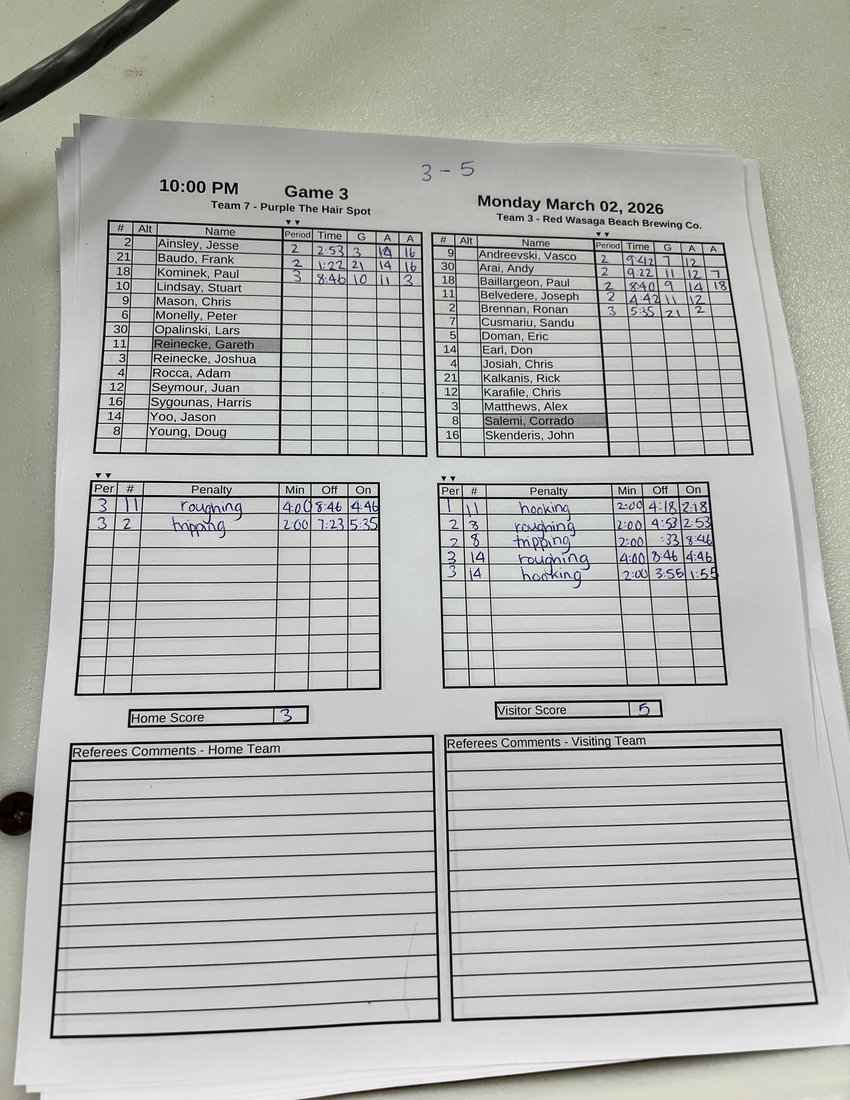 3 - 5
10:00 PM Game 3 Monday March 02, 2026
Team 7 - Purple The Hair Spot
Team 3 - Red Wasaga Beach Brewing Co.
# Alt Name Period Time G A A
2 Ainsley, Jesse 2 2:53 3 14 16
21 Baudo, Frank 2 1:22 21 14 16
18 Kominek, Paul 3 8:46 10 11 3
10 Lindsay, Stuart
9 Mason, Chris
6 Monelly, Peter
30 Opalinski, Lars
11 Reinecke, Gareth
3 Reinecke, Joshua
4 Rocca, Adam
12 Seymour, Juan
16 Sygounas, Harris
14 Yoo, Jason
8 Young, Doug
# Alt Name Period Time G A A
9 Andreevski, Vasco 2 9:42 7 12
30 Arai, Andy 2 9:22 11 12 7
18 Baillargeon, Paul 2 8:40 9 14 18
11 Belvedere, Joseph 2 4:42 11 12
2 Brennan, Ronan 3 5:35 21 2
7 Cusmariu, Sandu
5 Doman, Eric
14 Earl, Don
4 Josiah, Chris
21 Kalkanis, Rick
12 Karafile, Chris
3 Matthews, Alex
8 Salemi, Corrado
16 Skenderis, John
Per # Penalty Min Off On
3 11 roughing 4:00 8:46 4:46
3 2 tripping 2:00 7:23 5:35
Per # Penalty Min Off On
1 11 hooking 2:00 4:18 2:18
2 8 roughing 2:00 4:53 2:53
2 8 tripping 2:00 :33 8:46
3 14 roughing 4:00 8:46 4:46
3 14 hooking 2:00 3:55 1:55
Home Score 3
Visitor Score 5
Referees Comments - Home Team
Referees Comments - Visiting Team